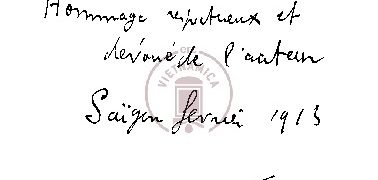 Hommage respectueux et
dévoué de l'auteur
Saïgon février 1913
VIETNAMICA